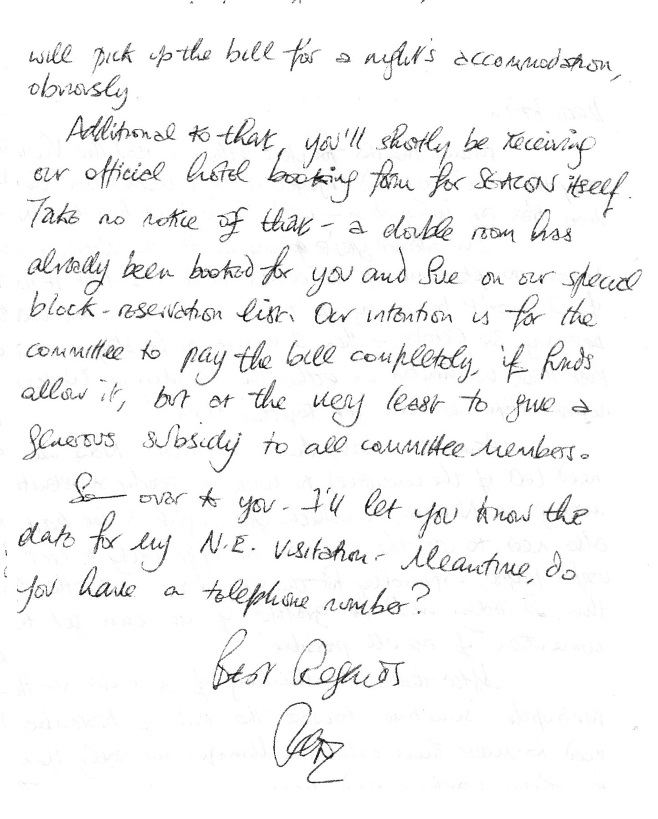 will pick up the bill for a night's accommodation,
obviously.
Additional to that, you'll shortly be receiving
our official hotel booking form for SEACON itself.
Take no notice of that - a double room has
already been booked for you and Sue on our special
block-reservation list. Our intention is for the
committee to pay the bill completely, if funds
allow it, but at the very least to give a
generous subsidy to all committee members.
So over to you. I'll let you know the
date for my N.E. visitation. Meantime, do
you have a telephone number?
Best Regards